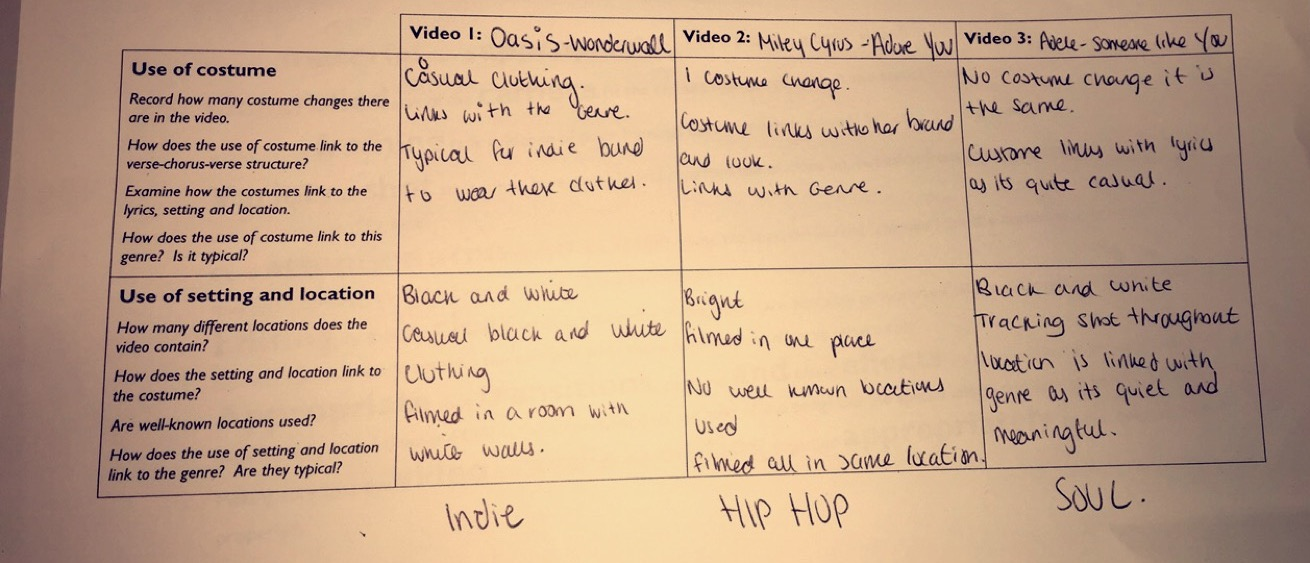 Video 1: Oasis-Wonderwall
Video 2: Miley Cyrus - Adore You
Video 3: Adele- someone like You
Use of costume
Record how many costume changes there
are in the video.
How does the use of costume link to the
verse-chorus-verse structure?
Examine how the costumes link to the
lyrics, setting and location.
How does the use of costume link to this
genre? Is it typical?
Casual clothing.
Links with the Genre.
Typical for indie band
to wear these clothes.
1 costume change.
Costume links with her brand
and look.
Links with Genre.
No costume change it is
the same.
Custome links with lyrics
as its quite casual.
Use of setting and location
How many different locations does the
video contain?
How does the setting and location link to
the costume?
Are well-known locations used?
How does the use of setting and location
link to the genre? Are they typical?
Black and white
Casual black and white
Clothing
filmed in a room with
white walls.
Bright
filmed in one place
No well known locations
used
filmed all in same location.
Black and white
Tracking shot throughout
location is linked with
genre as its quiet and
meaningful.
Indie
HIP HOP
SOUL.